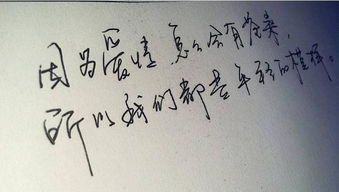 因为爱情 怎么会有沧桑，
所以我们都是年轻的模样。